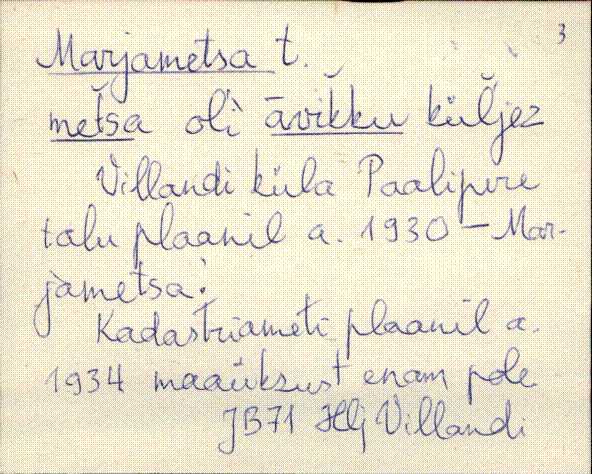 3
Marjametsa t.
metsa oli āvikku küljez
Villandi küla Paalipere
talu plaanil a. 1930 – Mar-
jametsa!
Kadastriameti plaanil a.
1934 maaüksust enam pole
JB71 Hlj Villandi